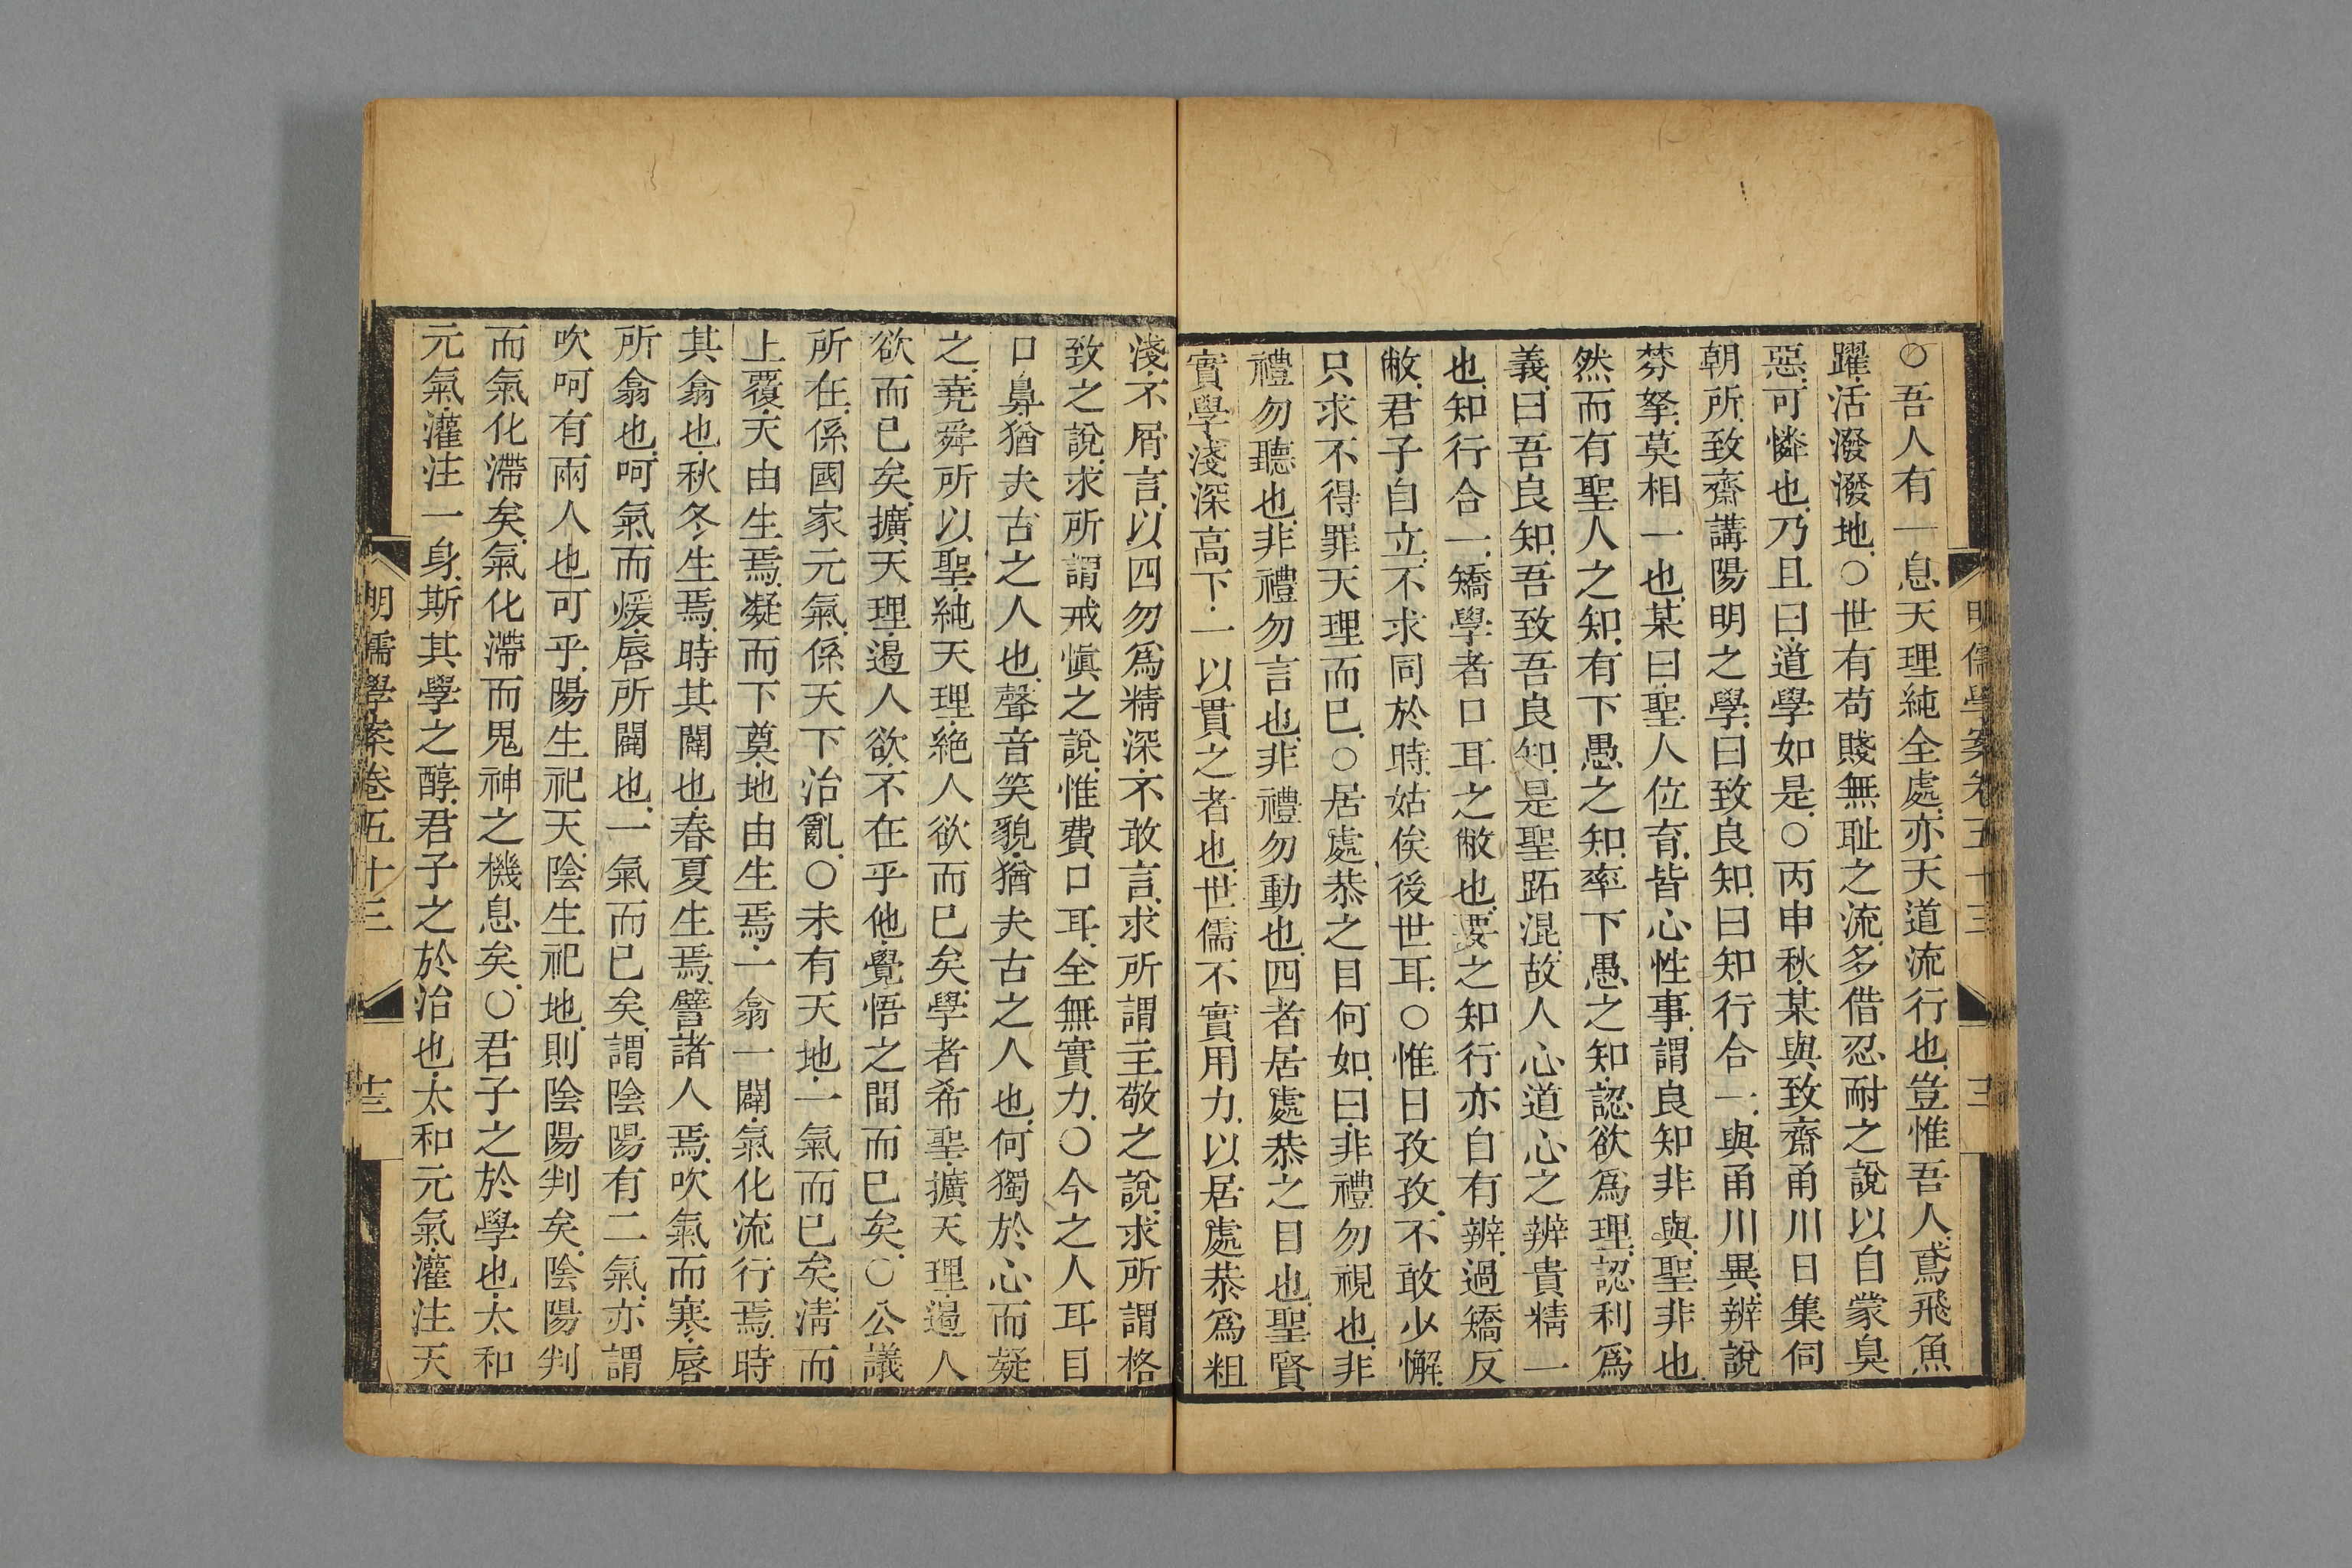 ○吾人有一息天理純全處亦天道流行也豈惟吾人鳶飛魚
躍活潑潑地○世有苟賤無耻之流多借忍耐之說以自蒙臭
惡可憐也乃且曰道學如是○丙申秋某與致齋甬川日集伺
朝所致齋講陽明之學曰致良知曰知行合一與甬川異辨說
棼拏莫相一也某曰聖人位育皆心性事謂良知非與聖非也
然而有聖人之知有下愚之知率下愚之知認欲爲理認利爲
義曰吾良知吾致吾良知是聖跖混故人心道心之辨貴精一
也知行合一矯學者口耳之敝也要之知行亦自有辨過矯反
敝君子自立不求同於時姑俟後世耳○惟日孜孜不敢少懈
只求不得罪天理而已○居處恭之目何如曰非禮勿視也非
禮勿聽也非禮勿言也非禮勿動也四者居處恭之目也聖賢
實學淺深高下一以貫之者也世儒不實用力以居處恭爲粗
淺不屑言以四勿爲精深不敢言求所謂主敬之說求所謂格
致之說求所謂戒愼之說惟費口耳全無實力○今之人耳目
口鼻猶夫古之人也聲音笑貌猶夫古之人也何獨於心而疑
之堯舜所以聖純天理絶人欲而已矣學者希聖擴天理遏人
欲而已矣擴天理遏人欲不在乎他覺悟之間而已矣○公議
所在係國家元氣係天下治亂○未有天地一氣而已矣淸而
上覆天由生焉凝而下奠地由生焉一翕一闢氣化流行焉時
其翕也秋冬生焉時其闢也春夏生焉譬諸人焉吹氣而寒唇
所翕也呵氣而煖唇所闢也一氣而已矣謂陰陽有二氣亦謂
吹呵有兩人也可乎陽生祀天陰生祀地則陰陽判矣陰陽判
而氣化滯矣氣化滯而鬼神之機息矣○君子之於學也太和
元氣灌注一身斯其學之醇君子之於治也太和元氣灌注天
明儒學案卷五十三
明儒學案卷五十三